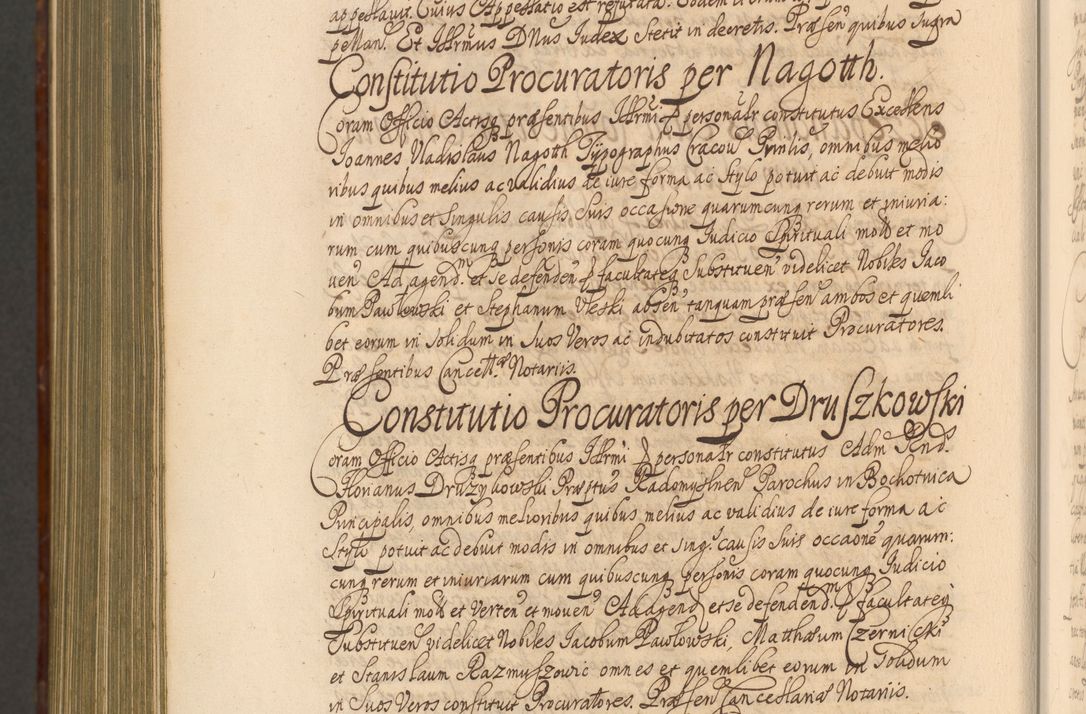 appellavit. Cuius Appellatio est refutata. Eodem
pellan. Et Illrmus DNus Iudex stetit in decretis. Præsen quibus supra
Constitutio Procuratoris per Nagotth.
Coram Officio Actisq præsentibus Illrmi D personalr constitutus Excellens
Ioannes Vladislaus Nagoth Typographus Cracou Prinlis, omnibus melio
ribus quibus melius ac validius de iure forma ac stylo potuit ac debuit modis
in omnibus et singulis causis suis occasione quarumcunq rerum et iniuria:
rum cum quibuscunq personis coram quocunq Iudicio Spirituali mott et mo
uen Ad agend. et se defenden D facultateq substituen videlicet Nobiles Iaco
bum Pawłowski et Stephanum Vleski absen tanquam præsen ambos et quemli
bet eorum in solidum in suos veros ac indubitatos constituit Procuratores.
Præsentibus Cancell. Notariis.
Constitutio Procuratoris per Druszkowski
Coram Officio Actisq præsentibus Illrmi D personalr constitutus Adm Rnd.
Florianus Druzykowski Præptus Radomyslnen Parochus in Bochotnica
Principalis, omnibus melioribus quibus melius ac validius de iure forma ac
stylo potuit ac debuit modis in omnibus et sing. causis suis occaone quarum:
cunq rerum et iniuriarum cum quibuscunq personis coram quocunq Iudicio
Spirituali mott et verten et mouen Ad agend et se defendend. D facultateq
Substituen videlicet Nobiles Iacobum Pawłowski, Matthæum Czernicki
et Stanislaum Razmyszowic omnes et quemlibet eorum in Solidum
in Suos Veros constituit Procuratores. Præsen Cancellariæ Notariis.